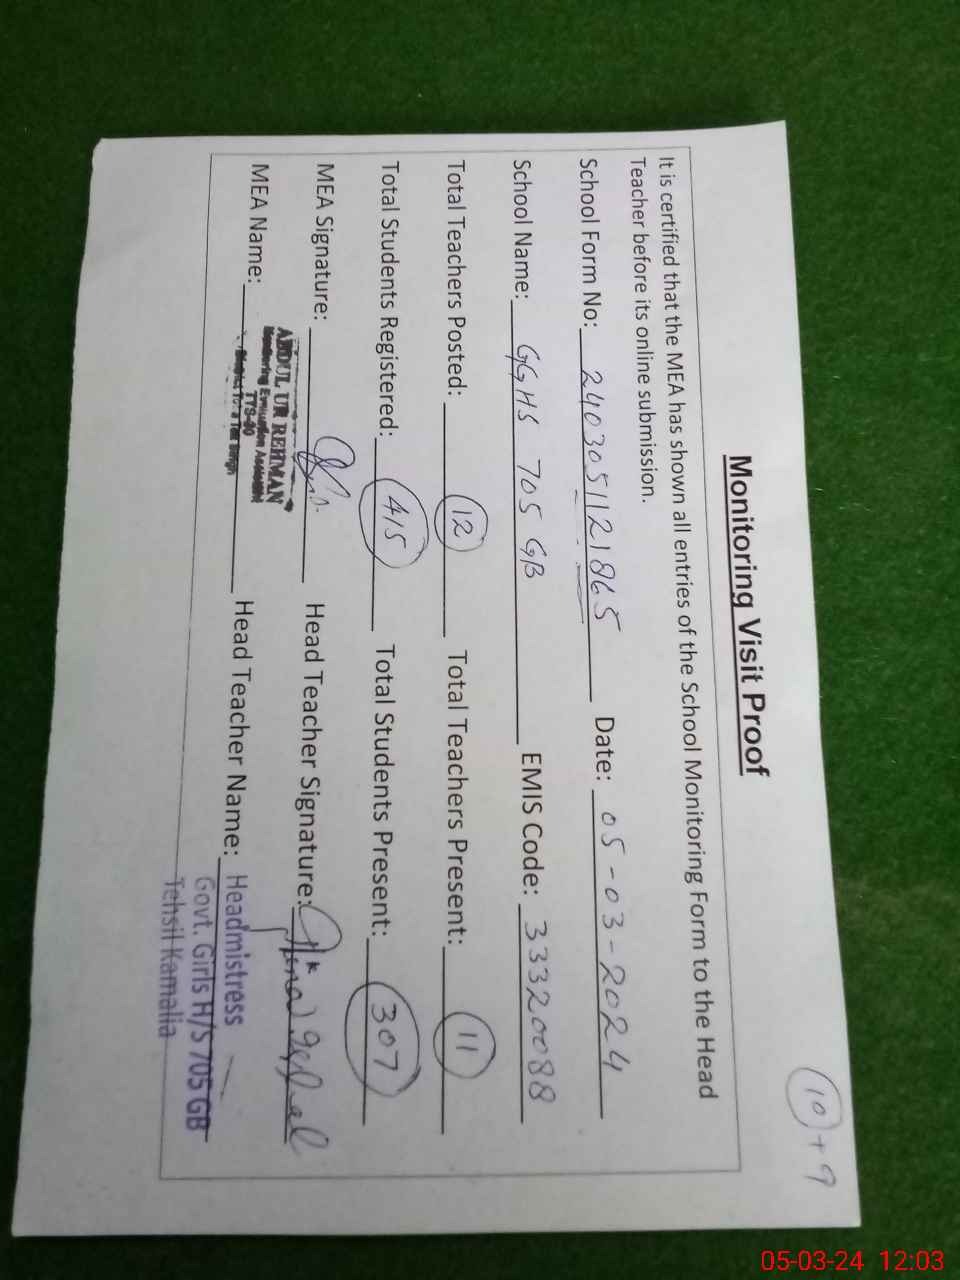 (10) + 9
Monitoring Visit Proof
It is certified that the MEA has shown all entries of the School Monitoring Form to the Head
Teacher before its online submission.
School Form No: 2403051121865 Date: 05-03-2024
School Name: GGHS 705 GB EMIS Code: 33320088
Total Teachers Posted: 12 Total Teachers Present: 11
Total Students Registered: 415 Total Students Present: 307
MEA Signature: Head Teacher Signature:
ABDUL UR REHMAN
Monitoring Evaluation Assistant
TTS-30
District Toba Tek Singh
MEA Name: Head Teacher Name: Headmistress
Govt. Girls H/S 705 GB
Tehsil Kamalia
05-03-24 12:03